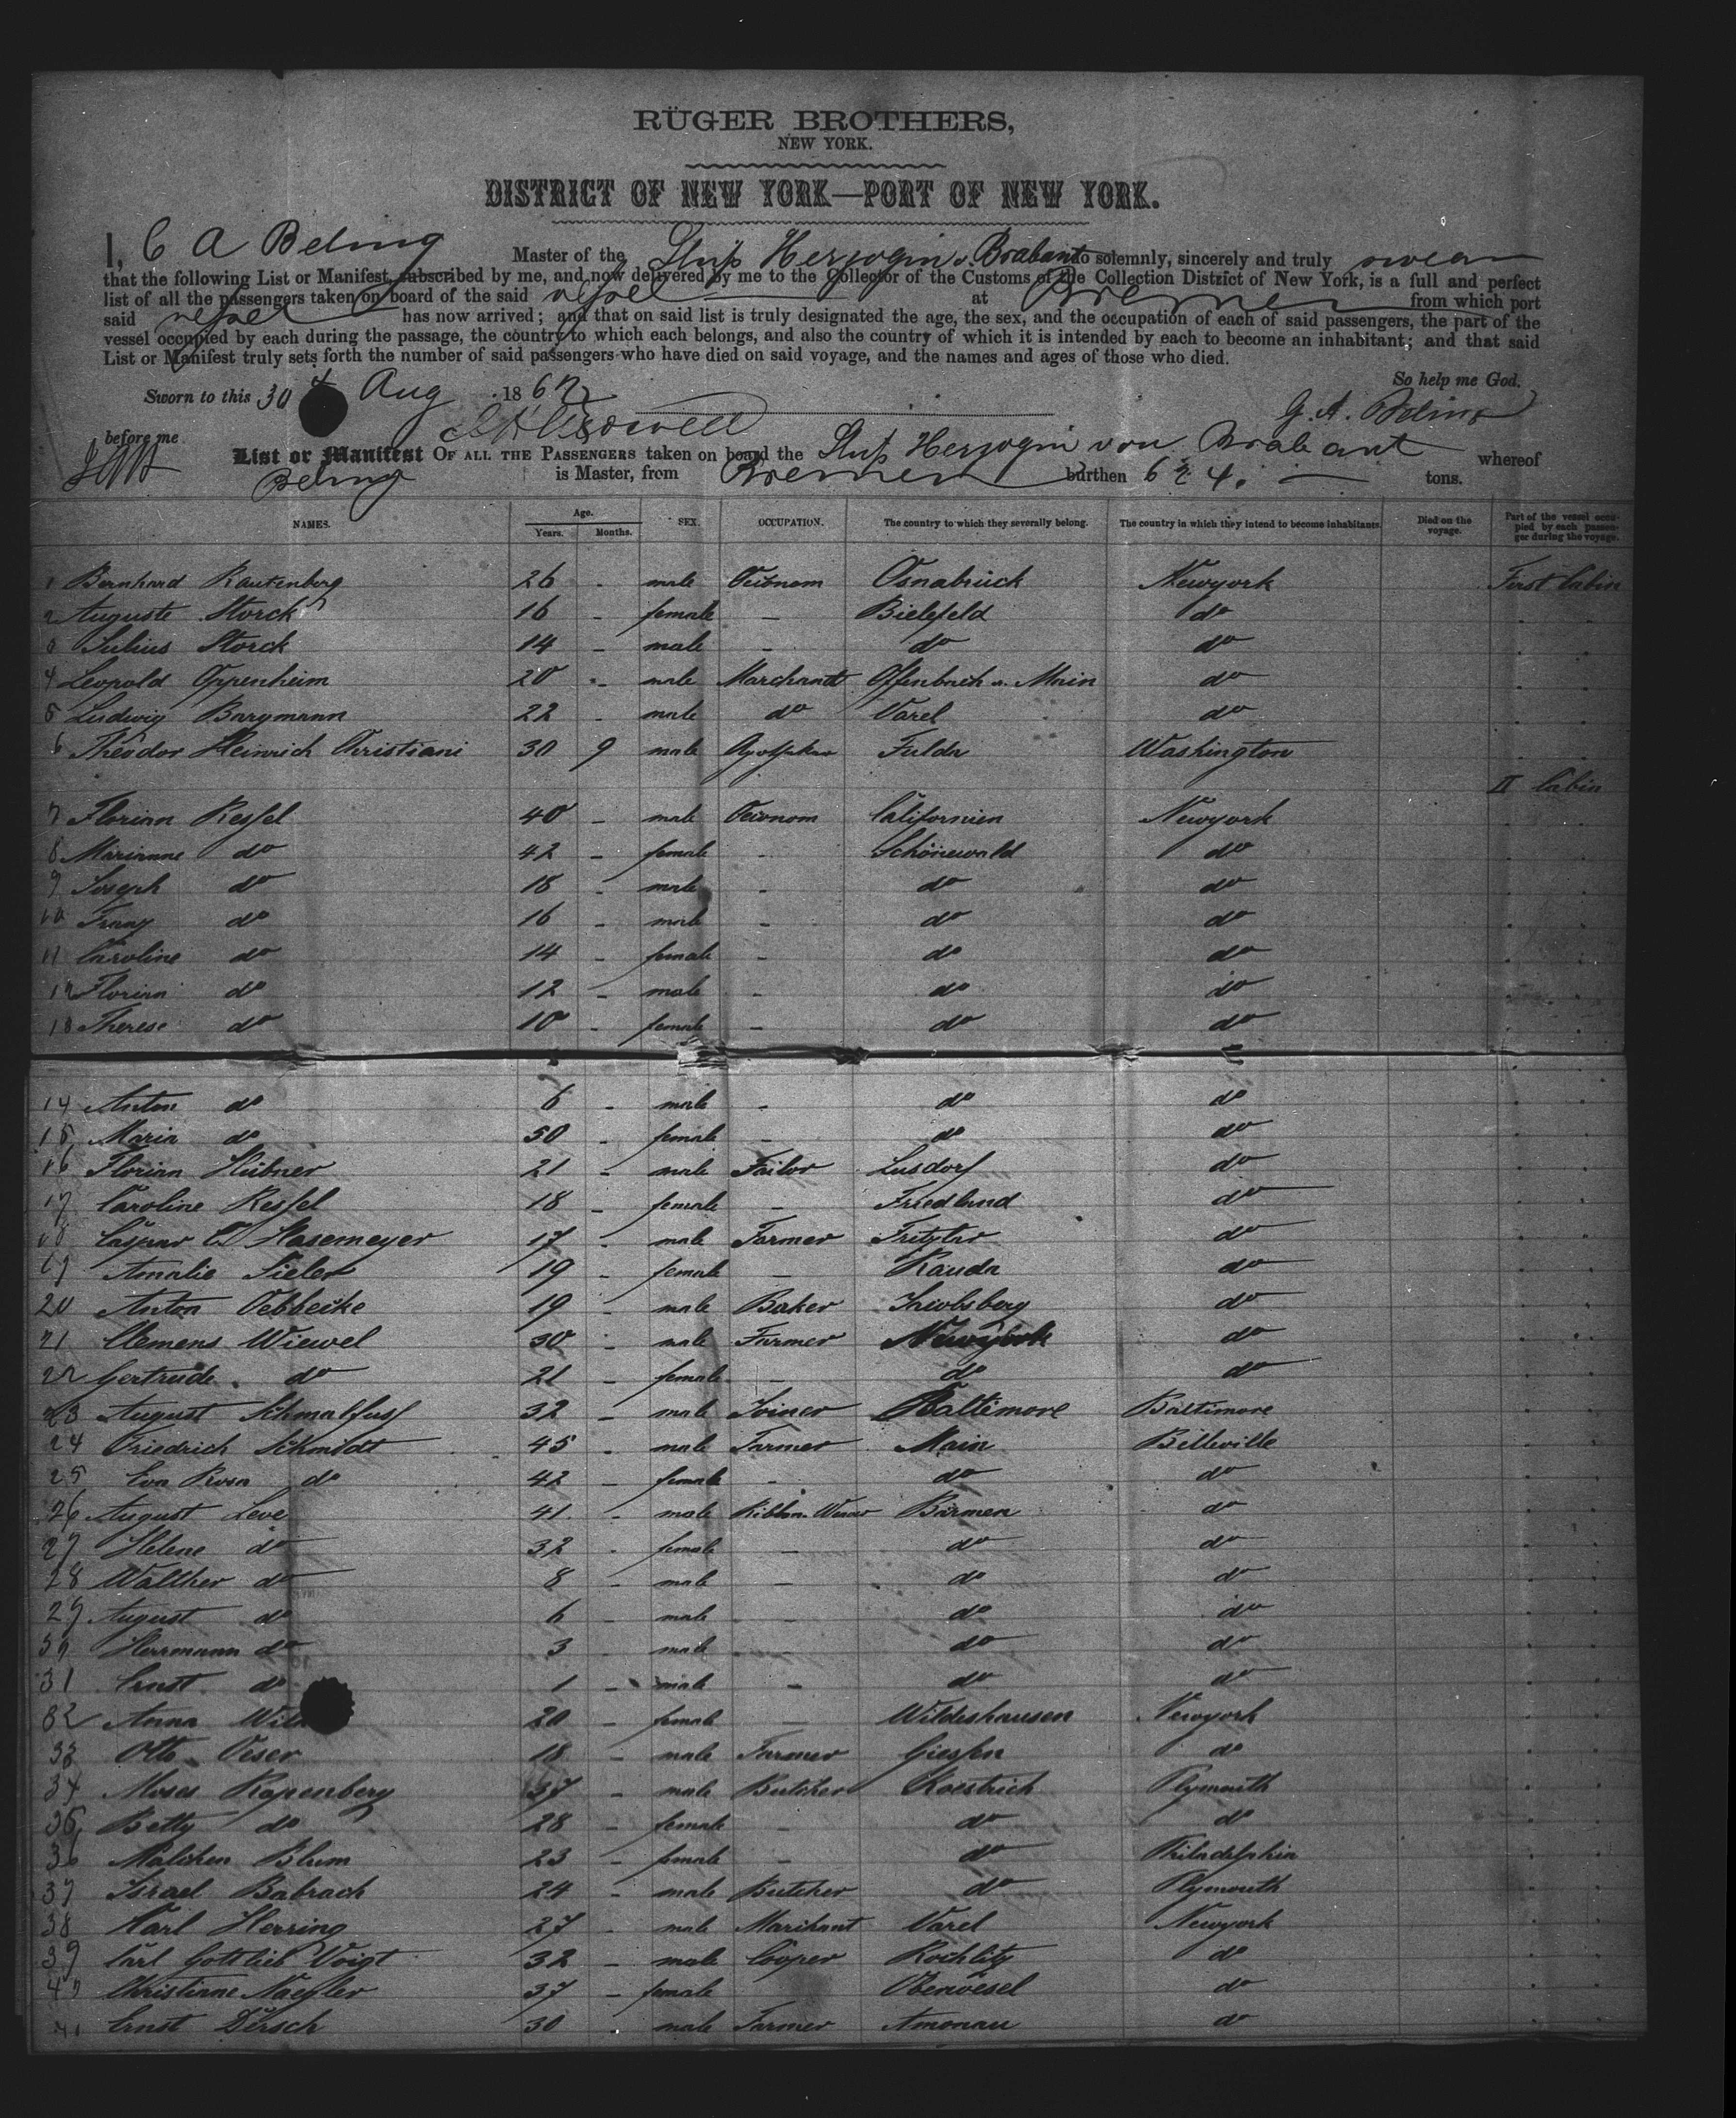 RÜGER BROTHERS,
NEW YORK.
DISTRICT OF NEW YORK—PORT OF NEW YORK.
I, C A Beling Master of the Ship Herzogin v. Brabant do solemnly, sincerely and truly swear
that the following List or Manifest, subscribed by me, and now delivered by me to the Collector of the Customs of the Collection District of New York, is a full and perfect
list of all the passengers taken on board of the said vessel at Bremen from which port
said vessel has now arrived; and that on said list is truly designated the age, the sex, and the occupation of each of said passengers, the part of the
vessel occupied by each during the passage, the country to which each belongs, and also the country of which it is intended by each to become an inhabitant; and that said
List or Manifest truly sets forth the number of said passengers who have died on said voyage, and the names and ages of those who died.
So help me God.
Sworn to this 30 Aug 1862
before me
List or Manifest OF ALL THE PASSENGERS taken on board the Ship Herzogin von Brabant whereof
Beling is Master, from Bremen burthen 624. tons.
NAMES. Age. Years. Months. SEX. OCCUPATION. The country to which they severally belong. The country in which they intend to become inhabitants. Died on the voyage. Part of the vessel occupied by each passenger during the voyage.
1 Bernhard Rautenberg 26 - male Oeconom Osnabrück Newyork First Cabin
2 Auguste Storck 16 - female - Bielefeld do
3 Julius Storck 14 - male - do do
4 Leopold Oppenheim 20 - male Marchandt Offenbach a. Main do
5 Ludwig Bargmann 22 - male do Varel do
6 Theodor Heinrich Christiani 30 9 male Fulda Washington
II Cabin
7 Florian Ressel 40 - male Oeconom Californien Newyork
8 Marianne do 42 - female - Schönewald do
9 Joseph do 18 - male - do do
10 Franz do 16 - male - do do
11 Caroline do 14 - female - do do
12 Florian do 12 - male - do do
13 Therese do 10 - female - do do
14 Anton do 6 - male - do do
15 Maria do 50 - female - do do
16 Florian Hübner 21 - male Tailor Lusdorf do
17 Caroline Ressel 18 - female - Friedland do
18 Caspar Hasemeyer 17 - male Farmer Fritzlar do
19 Amalie Sieler 19 - female - Rauda do
20 Anton Oebbecke 19 - male Baker Jacobsberg do
21 Clemens Wiewel 30 - male Farmer Newyork do
22 Gertrude do 21 - female - do do
23 August Schmalfuss 32 - male Joiner Baltimore Baltimore
24 Friedrich Schmidt 45 - male Farmer Main Billeville
25 Eva Rosa do 42 - female - do do
26 August Leve 41 - male Ribbon Weaver Barmen do
27 Helene do 32 - female - do do
28 Walther do 8 - male - do do
29 August do 6 - male - do do
30 Herrmann do 3 - male - do do
31 Ernst do 1 - male - do do
32 Anna 20 - female - Wildeshausen Newyork
33 Otto Oeser 18 - male Farmer Giessen do
34 Moses Rosenberg 37 - male Butcher Kaestrich Plymouth
35 Betty do 28 - female - do do
36 Malchen Blum 23 - female - do Philadelphia
37 Israel Babrach 24 - male Butcher do Plymouth
38 Karl Herring 27 - male Marchant Varel Newyork
39 Carl Gottlieb Voigt 32 - male Cooper Rochlitz do
40 Christiane Naessler 37 - female Oberwesel do
41 Ernst Dersch 30 - male Farmer Amonau do